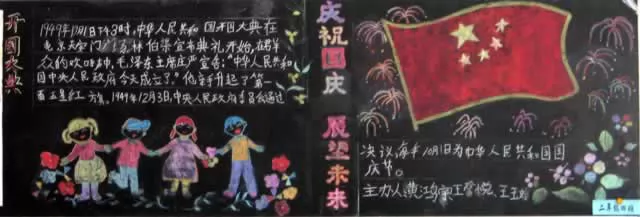 开国大典
1949年10月1日下午3时,中华人民共和国开国大典在
北京天安门广场,林伯渠宣布典礼开始,在群
众的欢呼声中,毛泽东主席庄严宣告:“中华人民共和
国中央人民政府今天成立了。”他亲手升起了第一
面五星红旗。1949年12月3日,中央人民政府委员会通过
庆祝国庆 展望未来
决议每年10月1日为中华人民共和国国
庆节。
主办人